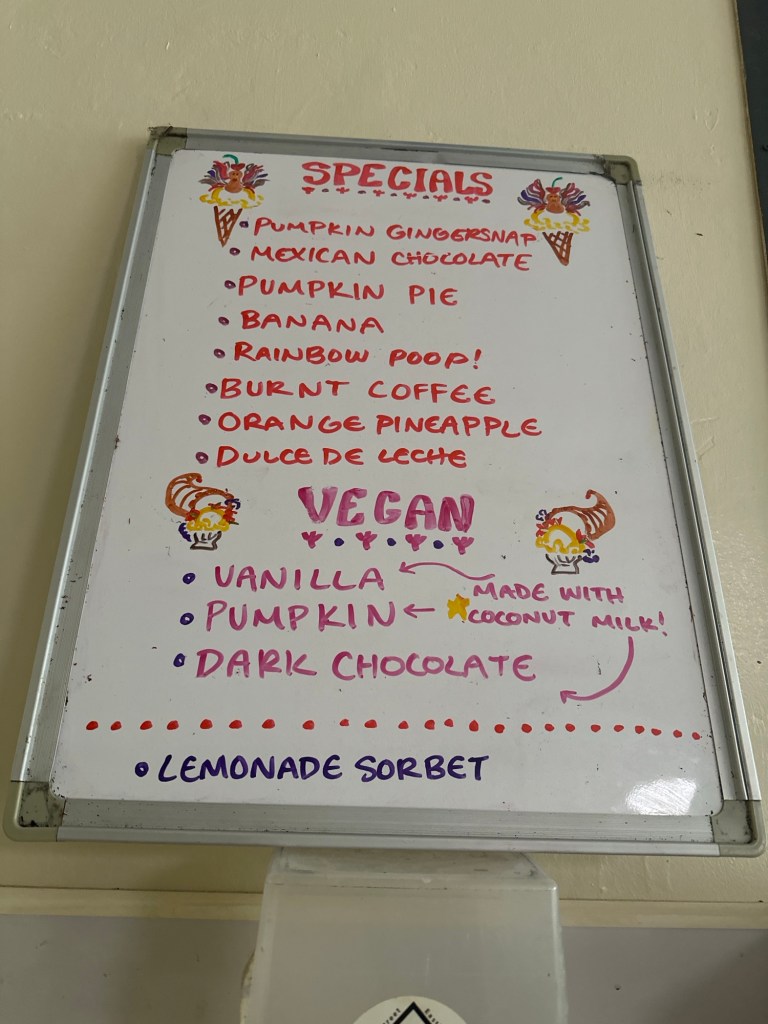 SPECIALS
• PUMPKIN GINGERSNAP
• MEXICAN CHOCOLATE
• PUMPKIN PIE
• BANANA
• RAINBOW POOP!
• BURNT COFFEE
• ORANGE PINEAPPLE
• DULCE DE LECHE
VEGAN
• VANILLA
• PUMPKIN
• DARK CHOCOLATE
MADE WITH
COCONUT MILK!
• LEMONADE SORBET